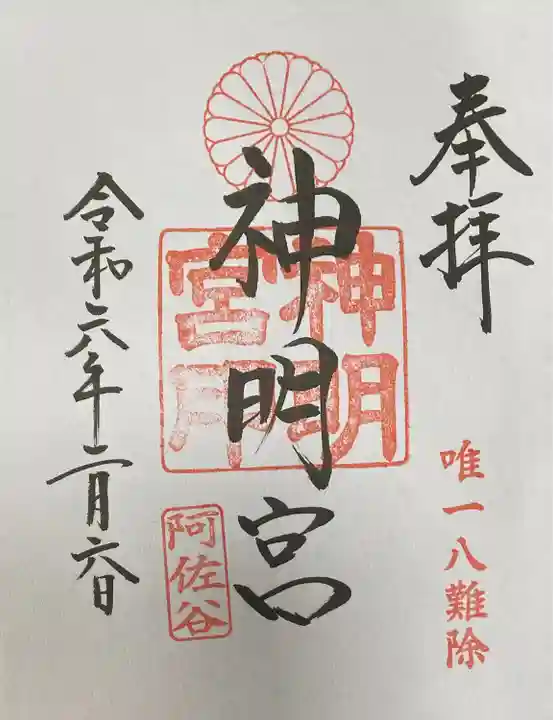 奉拝
唯一八難除
神明宮
神明宮印
阿佐谷
令和六年二月六日